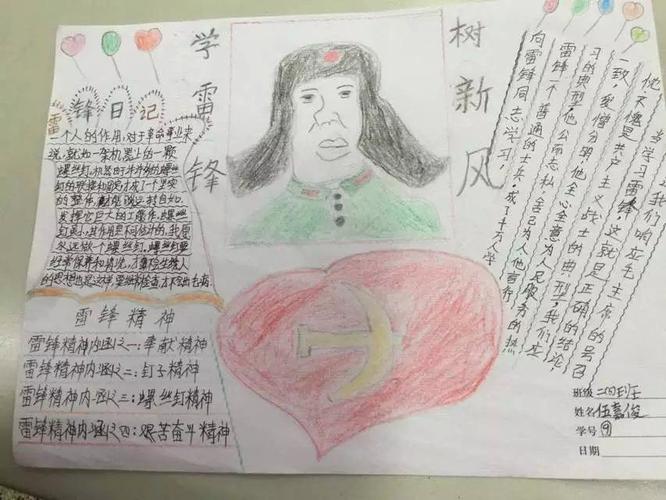 学雷锋
树新风
雷锋日记
一个人的作用,对于革命事业来
说,就如一架机器上的一颗
螺丝钉,机器由于许许多多的螺丝
钉的联接和固定,成了一个坚实
的整体,才能够运转自如,
发挥它巨大的工作,螺丝
钉虽小,其作用是可估计的,我愿
永远做个螺丝钉,螺丝钉要
经常保养和清洗,才会生锈人
的思想也是这样要经常检查才不会出毛病
雷锋精神
雷锋精神内涵之一:奉献精神
雷锋精神内涵之二:钉子精神
雷锋精神内涵之三:螺丝钉精神
雷锋精神内涵之四:艰苦奋斗精神
向雷锋同志学习,
雷锋一个普通的士兵,成了千万人学
习的典型,他公而忘私,舍己为人他言行
一致,爱憎分明,他全心全意为人民服务的热
他不愧是共产主义战士的典型,我们应
学习雷锋,这就是正确的结论
当我们响应毛主席的号召
班级 二(四)班
姓名 伍嘉俊
学号 9
日期